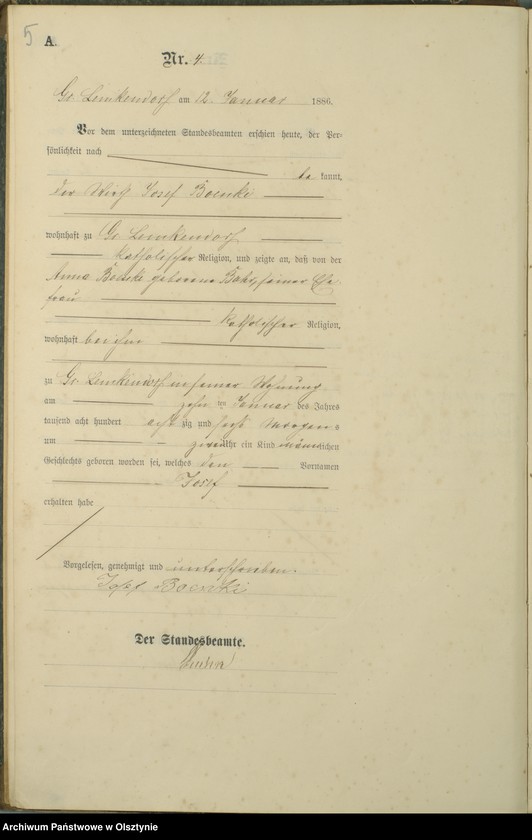 5
A.
Nr. 4.
Gr. Lemkendorf am 12. Januar 1886.
Vor dem unterzeichneten Standesbeamten erschien heute, der Per-
sönlichkeit nach
be kannt,
der Wirth Josef Boenki
wohnhaft zu Gr. Lemkendorf
katholischer Religion, und zeigte an, daß von der
Anna Boenki geborene seiner Ehe-
frau
katholischer Religion,
wohnhaft bei ihm
zu Gr. Lemkendorf in seiner Wohnung
am zehn ten Januar des Jahres
tausend acht hundert acht zig und sechs Morgens
um zwei Uhr ein Kind männlichen
Geschlechts geboren worden sei, welches den Vornamen
Josef
erhalten habe
Vorgelesen, genehmigt und unterschrieben.
Josef Boenki
Der Standesbeamte.
Archiwum Państwowe w Olsztynie